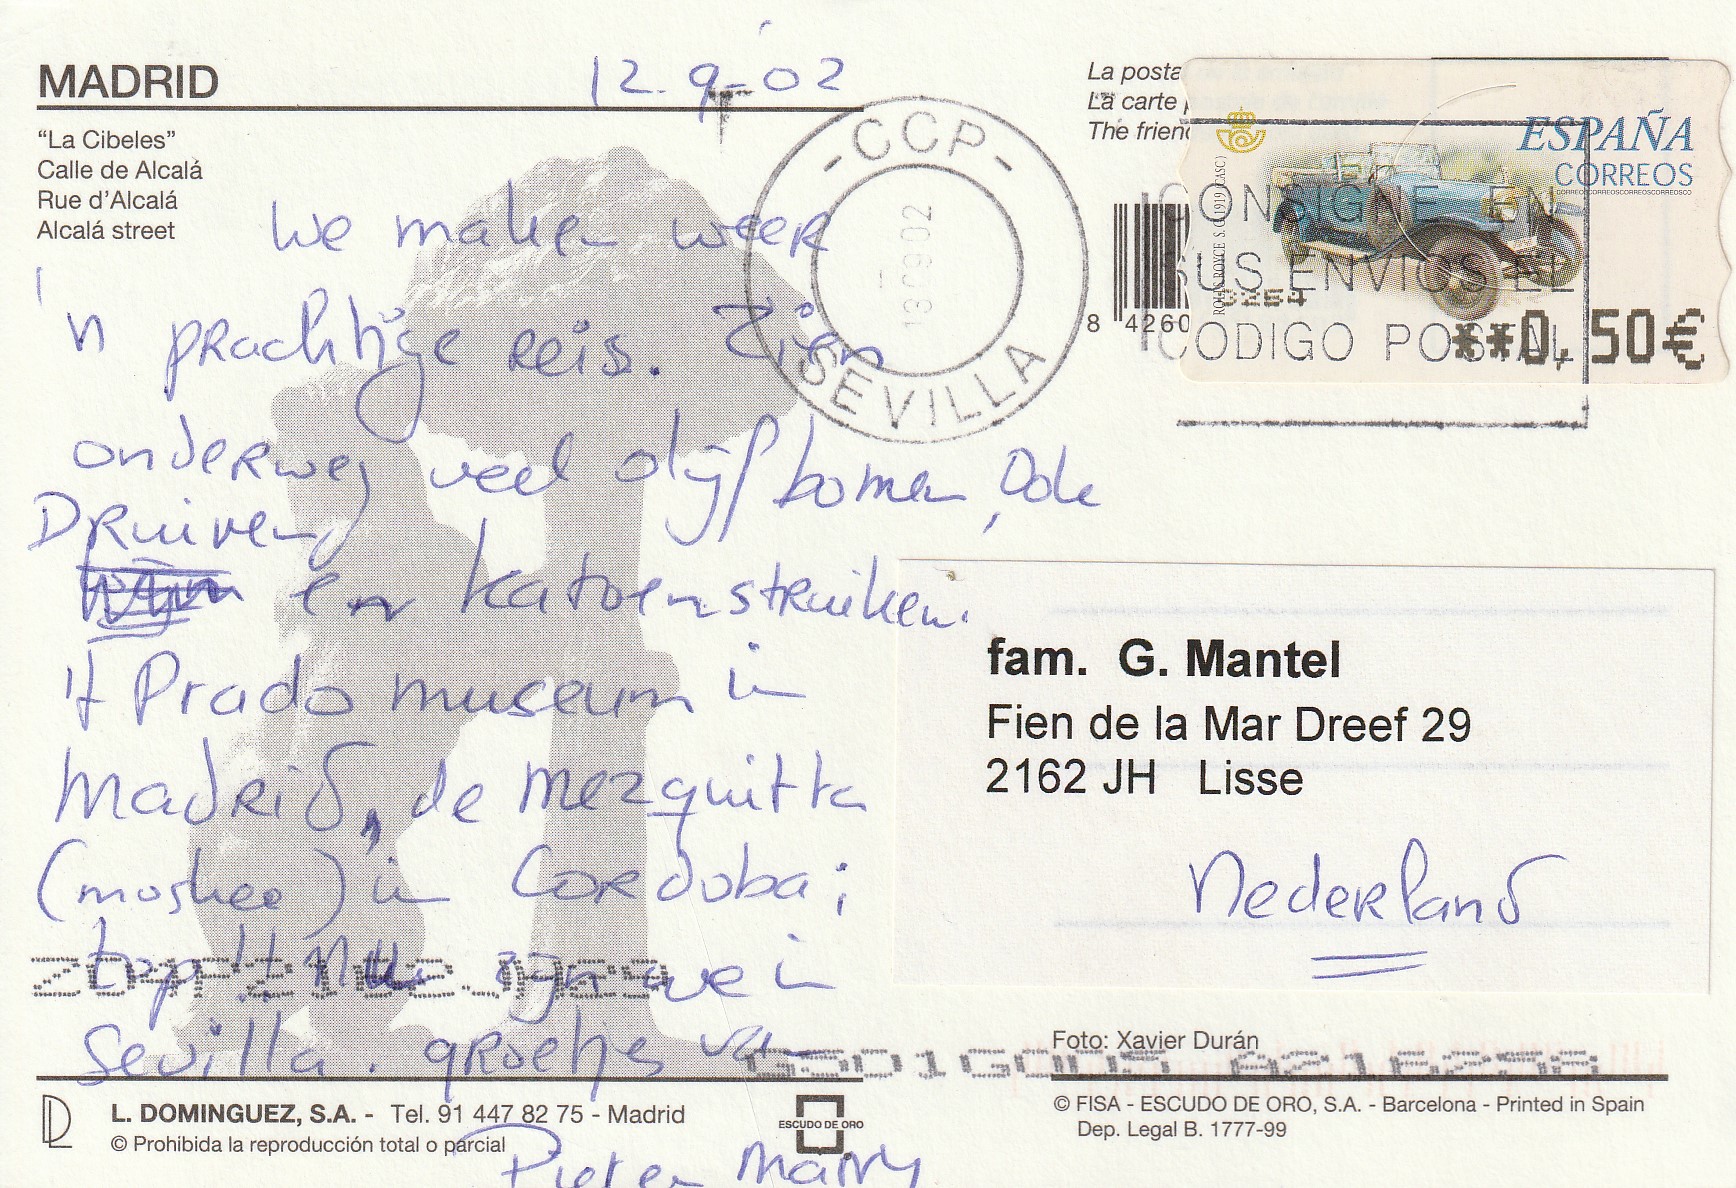 MADRID
12.9-02
"La Cibeles"
Calle de Alcalá
Rue d'Alcalá
Alcalá street
We maken weer
'n prachtige reis. Zien
onderweg veel olijfbomen, Ook
Druiven
en katoenstruiken.
't Prado museum in
Madrid, de Mezquitta
(moskee) in Cordoba;
top!! Nu zijn we in
Sevilla. groetjes van
Pieter Marry
La posta
La carte
The frien
- CCP -
13 09 02
SEVILLA
ESPAÑA
CORREOS
ROLLS ROYCE S. G. 1919 (CASC)
CONSIGNE EN
SUS ENVIOS EL
CODIGO POSTAL
0264
**0,50€
8 4260
fam. G. Mantel
Fien de la Mar Dreef 29
2162 JH Lisse
Nederland
Foto: Xavier Durán
L. DOMINGUEZ, S.A. - Tel. 91 447 82 75 - Madrid
© Prohibida la reproducción total o parcial
ESCUDO DE ORO
© FISA - ESCUDO DE ORO, S.A. - Barcelona - Printed in Spain
Dep. Legal B. 1777-99